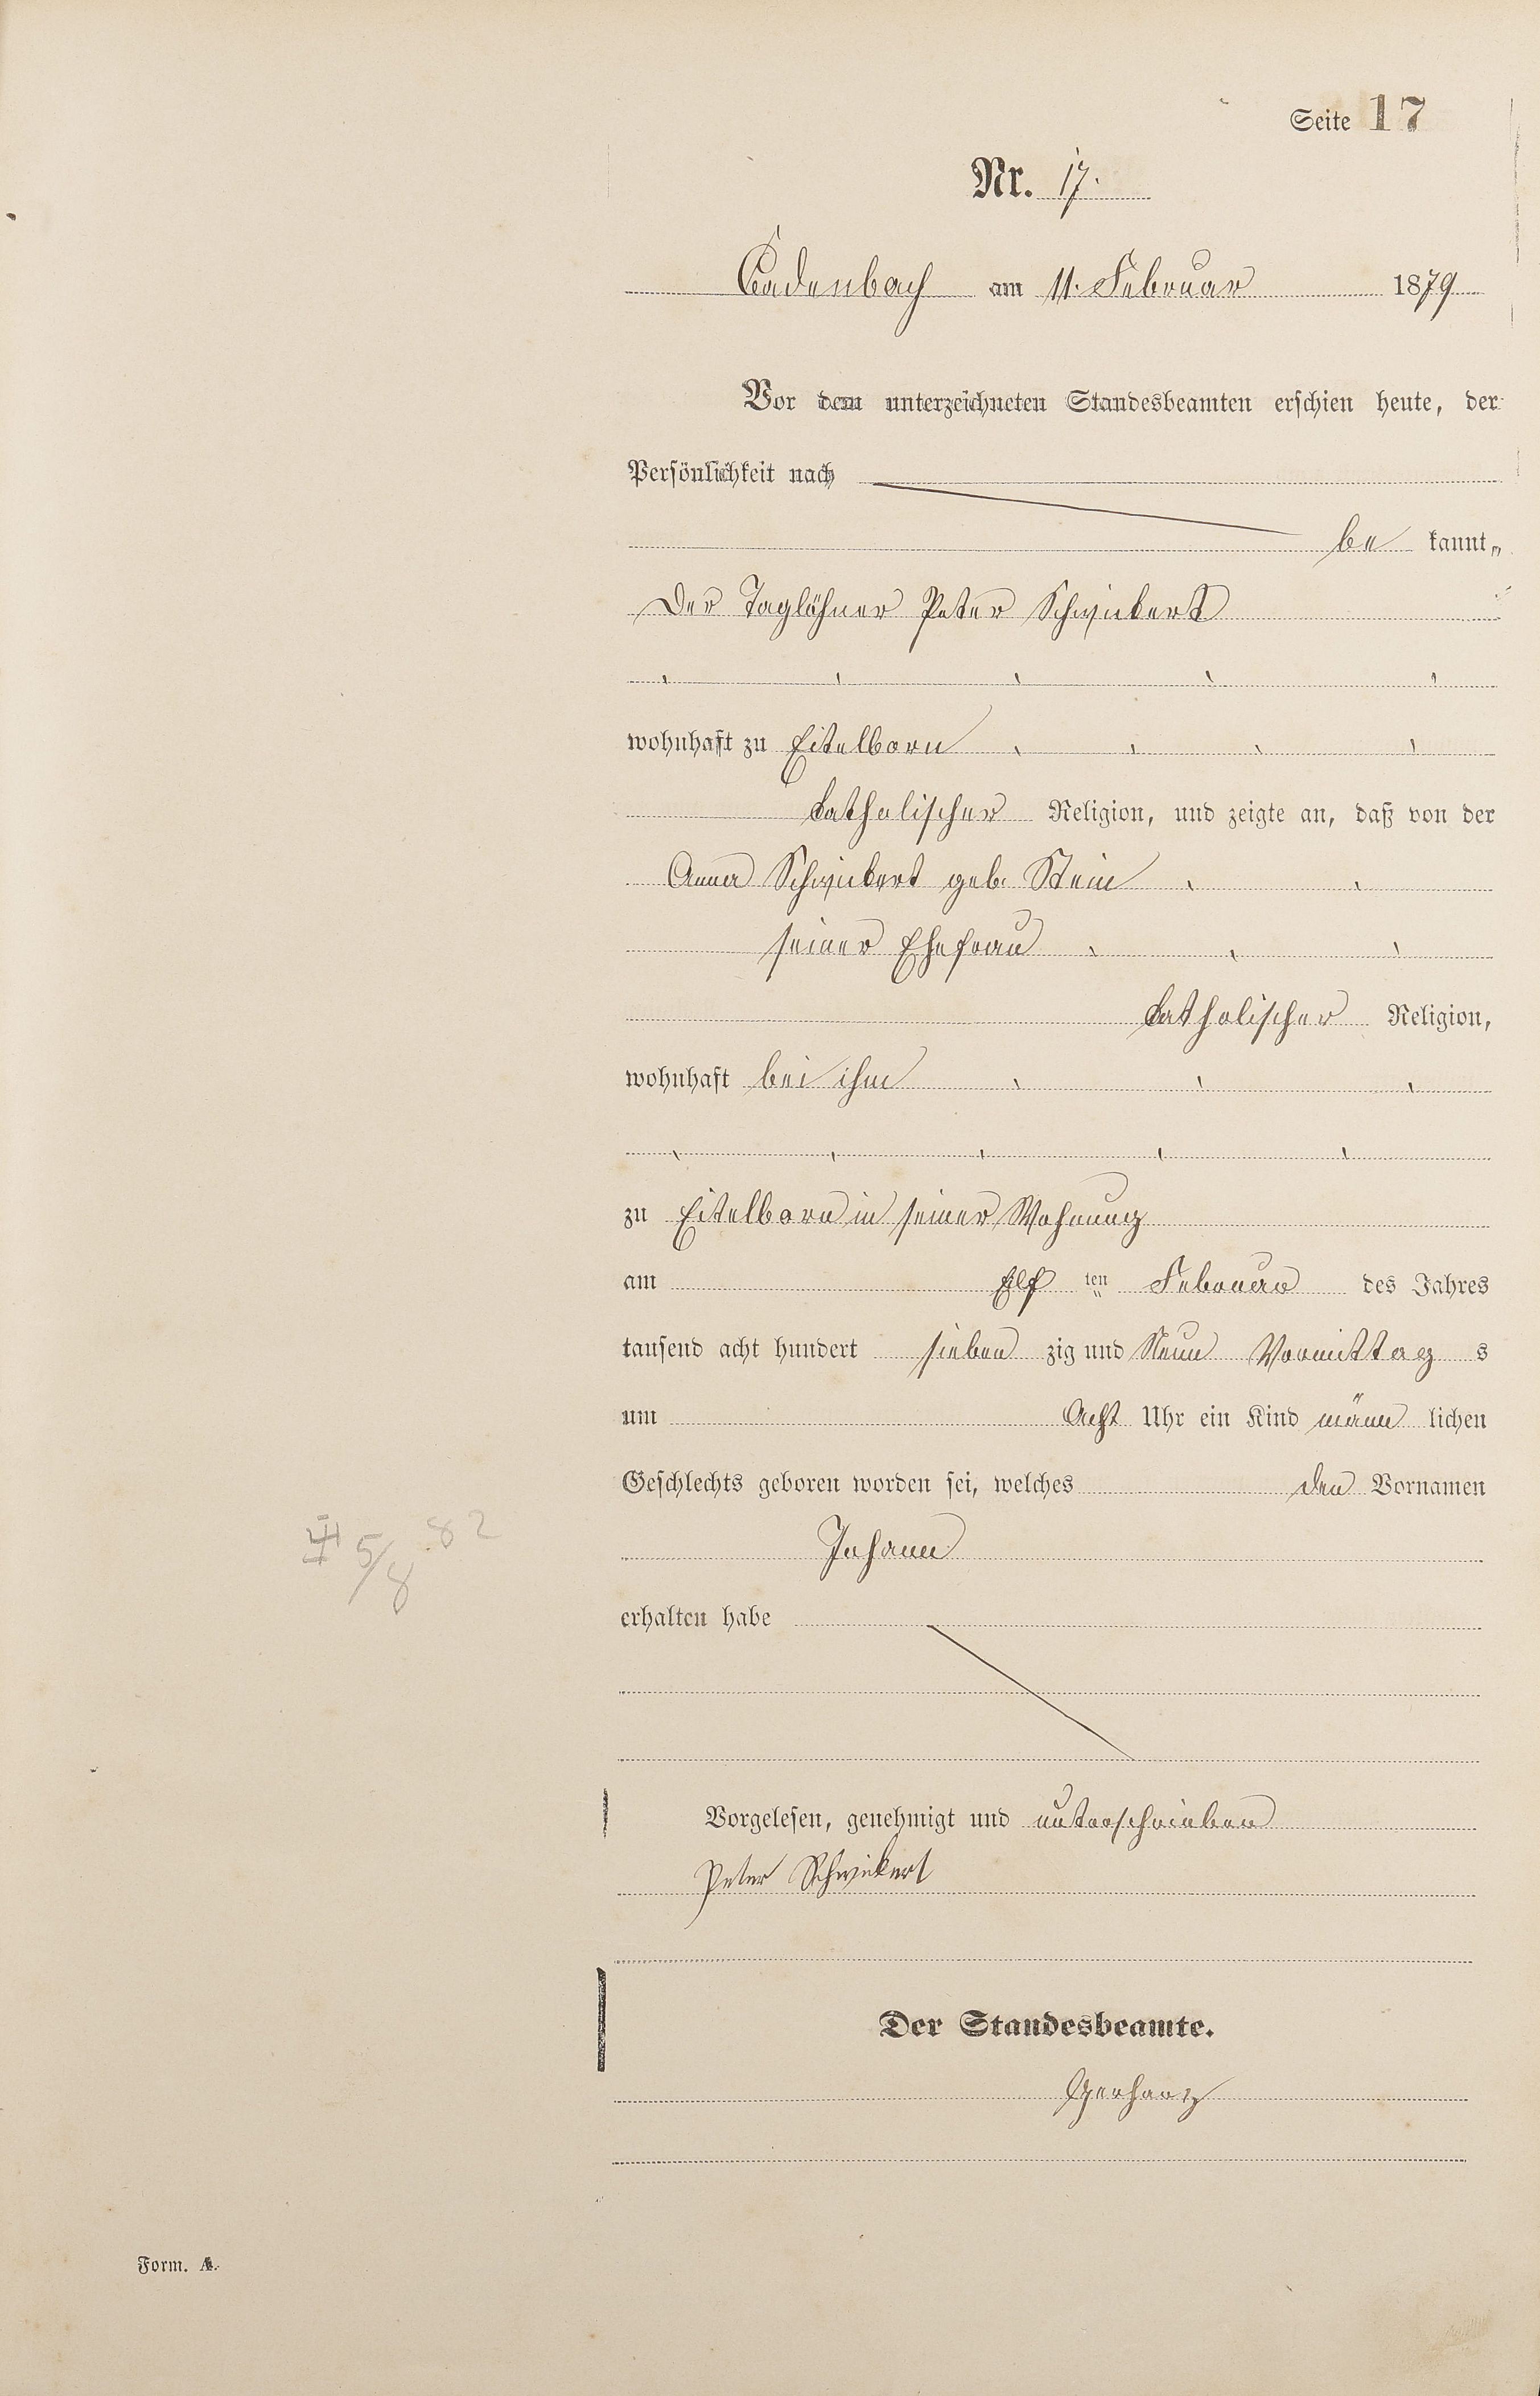 Seite 17
Nr. 17.
Cadenbach am 11. Februar 1879
Vor dem unterzeichneten Standesbeamten erschien heute, der
Persönlichkeit nach
be kannt,,
Der Taglöhner Peter Schwickert
wohnhaft zu Eitelborn
katholischer Religion, und zeigte an, daß von der
Anna Schwickert geb. Stein
seiner Ehefrau
katholischer Religion,
wohnhaft bei ihm
zu Eitelborn in seiner Wohnung
am Elf ten Februar des Jahres
tausend acht hundert sieben zig und Neun Vormittag s
um Acht Uhr ein Kind männ lichen
Geschlechts geboren worden sei, welches den Vornamen
5/8 82
Johann
erhalten habe
Vorgelesen, genehmigt und unterschrieben
Peter Schwikert
Der Standesbeamte.
Gerharz
Form. A.